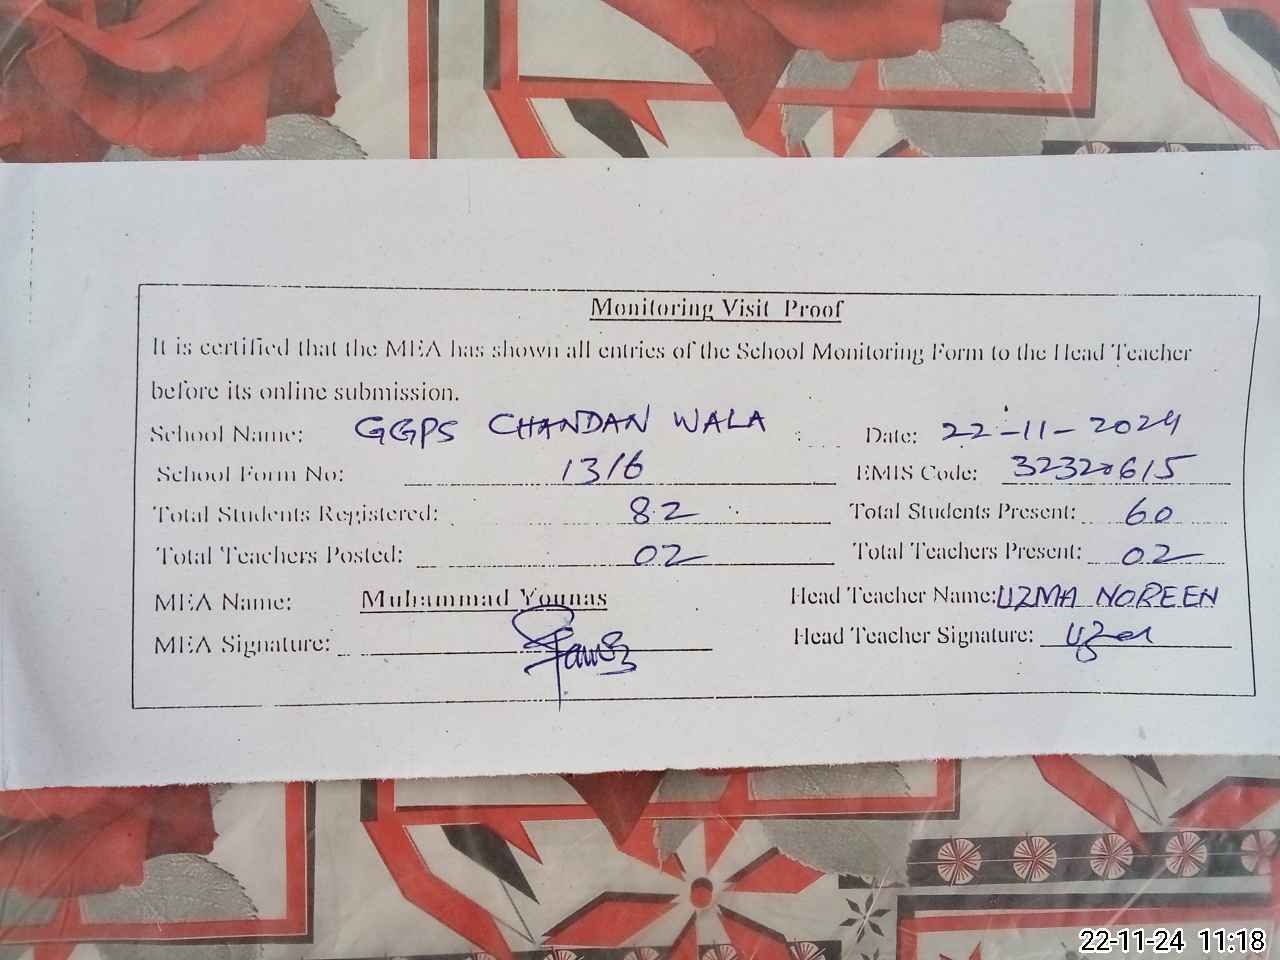 Monitoring Visit Proof
It is certified that the MEA has shown all entries of the School Monitoring Form to the Head Teacher
before its online submission.
School Name: GGPS CHANDAN WALA Date: 22-11-2024
School Form No: 1316 EMIS Code: 32320615
Total Students Registered: 82 Total Students Present: 60
Total Teachers Posted: 02 Total Teachers Present: 02
MEA Name: Muhammad Younas Head Teacher Name: UZMA NOREEN
MEA Signature: Head Teacher Signature:
22-11-24 11:18